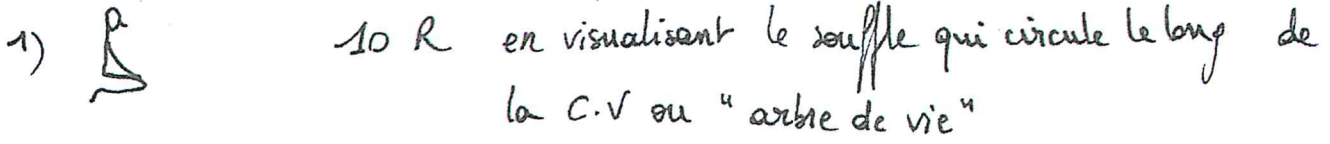 1) 10 R en visualisant le souffle qui circule le long de
la C.V ou "arbre de vie"